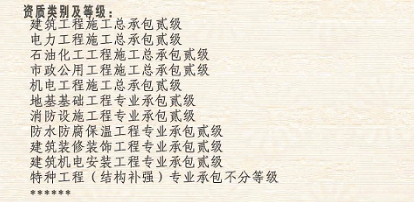 资质类别及等级:
建筑工程施工总承包贰级
电力工程施工总承包贰级
石油化工工程施工总承包贰级
市政公用工程施工总承包贰级
机电工程施工总承包贰级
地基基础工程专业承包贰级
消防设施工程专业承包贰级
防水防腐保温工程专业承包贰级
建筑装修装饰工程专业承包贰级
建筑机电安装工程专业承包贰级
特种工程(结构补强)专业承包不分等级
******